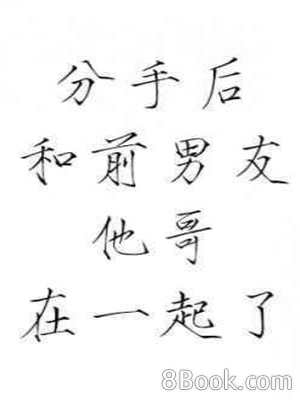 分手后
和前男友
他哥
在一起了
8Book.com